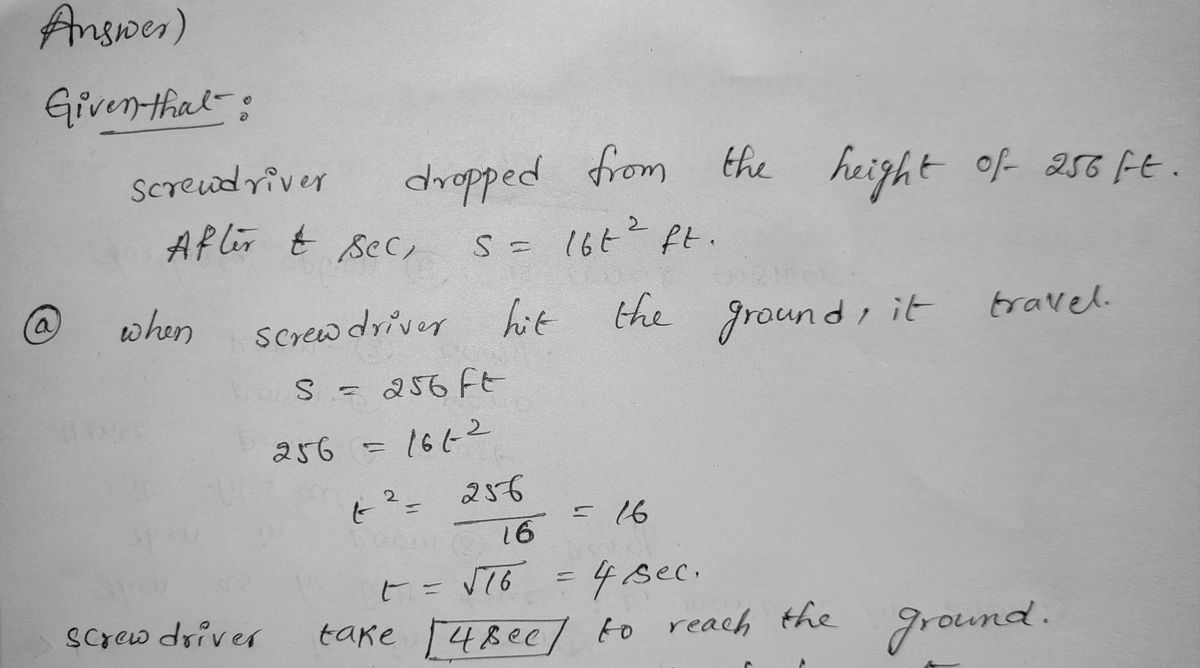 Answer)
Given that :
screwdriver dropped from the height of 256 ft.
After t sec, S = 16t² ft.
ⓐ when screw driver hit the ground, it travel.
S = 256 ft
256 = 16t²
t² = 256/16 = 16
t = √16 = 4 sec.
screw driver take 4 sec to reach the ground.